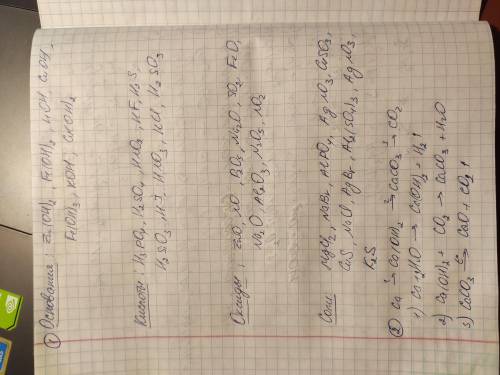 ① Основания: Zn(OH)₂, Fe(OH)₂, LiOH, CuOH,
Fe(OH)₃, KOH, Cu(OH)₂
Кислоты: H₃PO₄, H₂SO₄, HNO₂, HF, H₂S,
H₂SiO₃, HI, HNO₃, HCl, H₂SO₃
Оксиды: ZnO, NO, Na₂O, SO₂, FeO,
N₂O, Al₂O₃, NO₂
Соли MgCl₂, NaBr, AlPO₄, AgNO₃, CaSO₃,
CaS, NaCl, AgBr, Al₂(SO₄)₃, AgNO₃,
K₂S
② Ca →¹ Ca(OH)₂ →² CaCO₃ →³ CO₂
2) Ca(OH)₂ + CO₂ → CaCO₃ + H₂O
3) CaCO₃ →t° CaO + CO₂↑